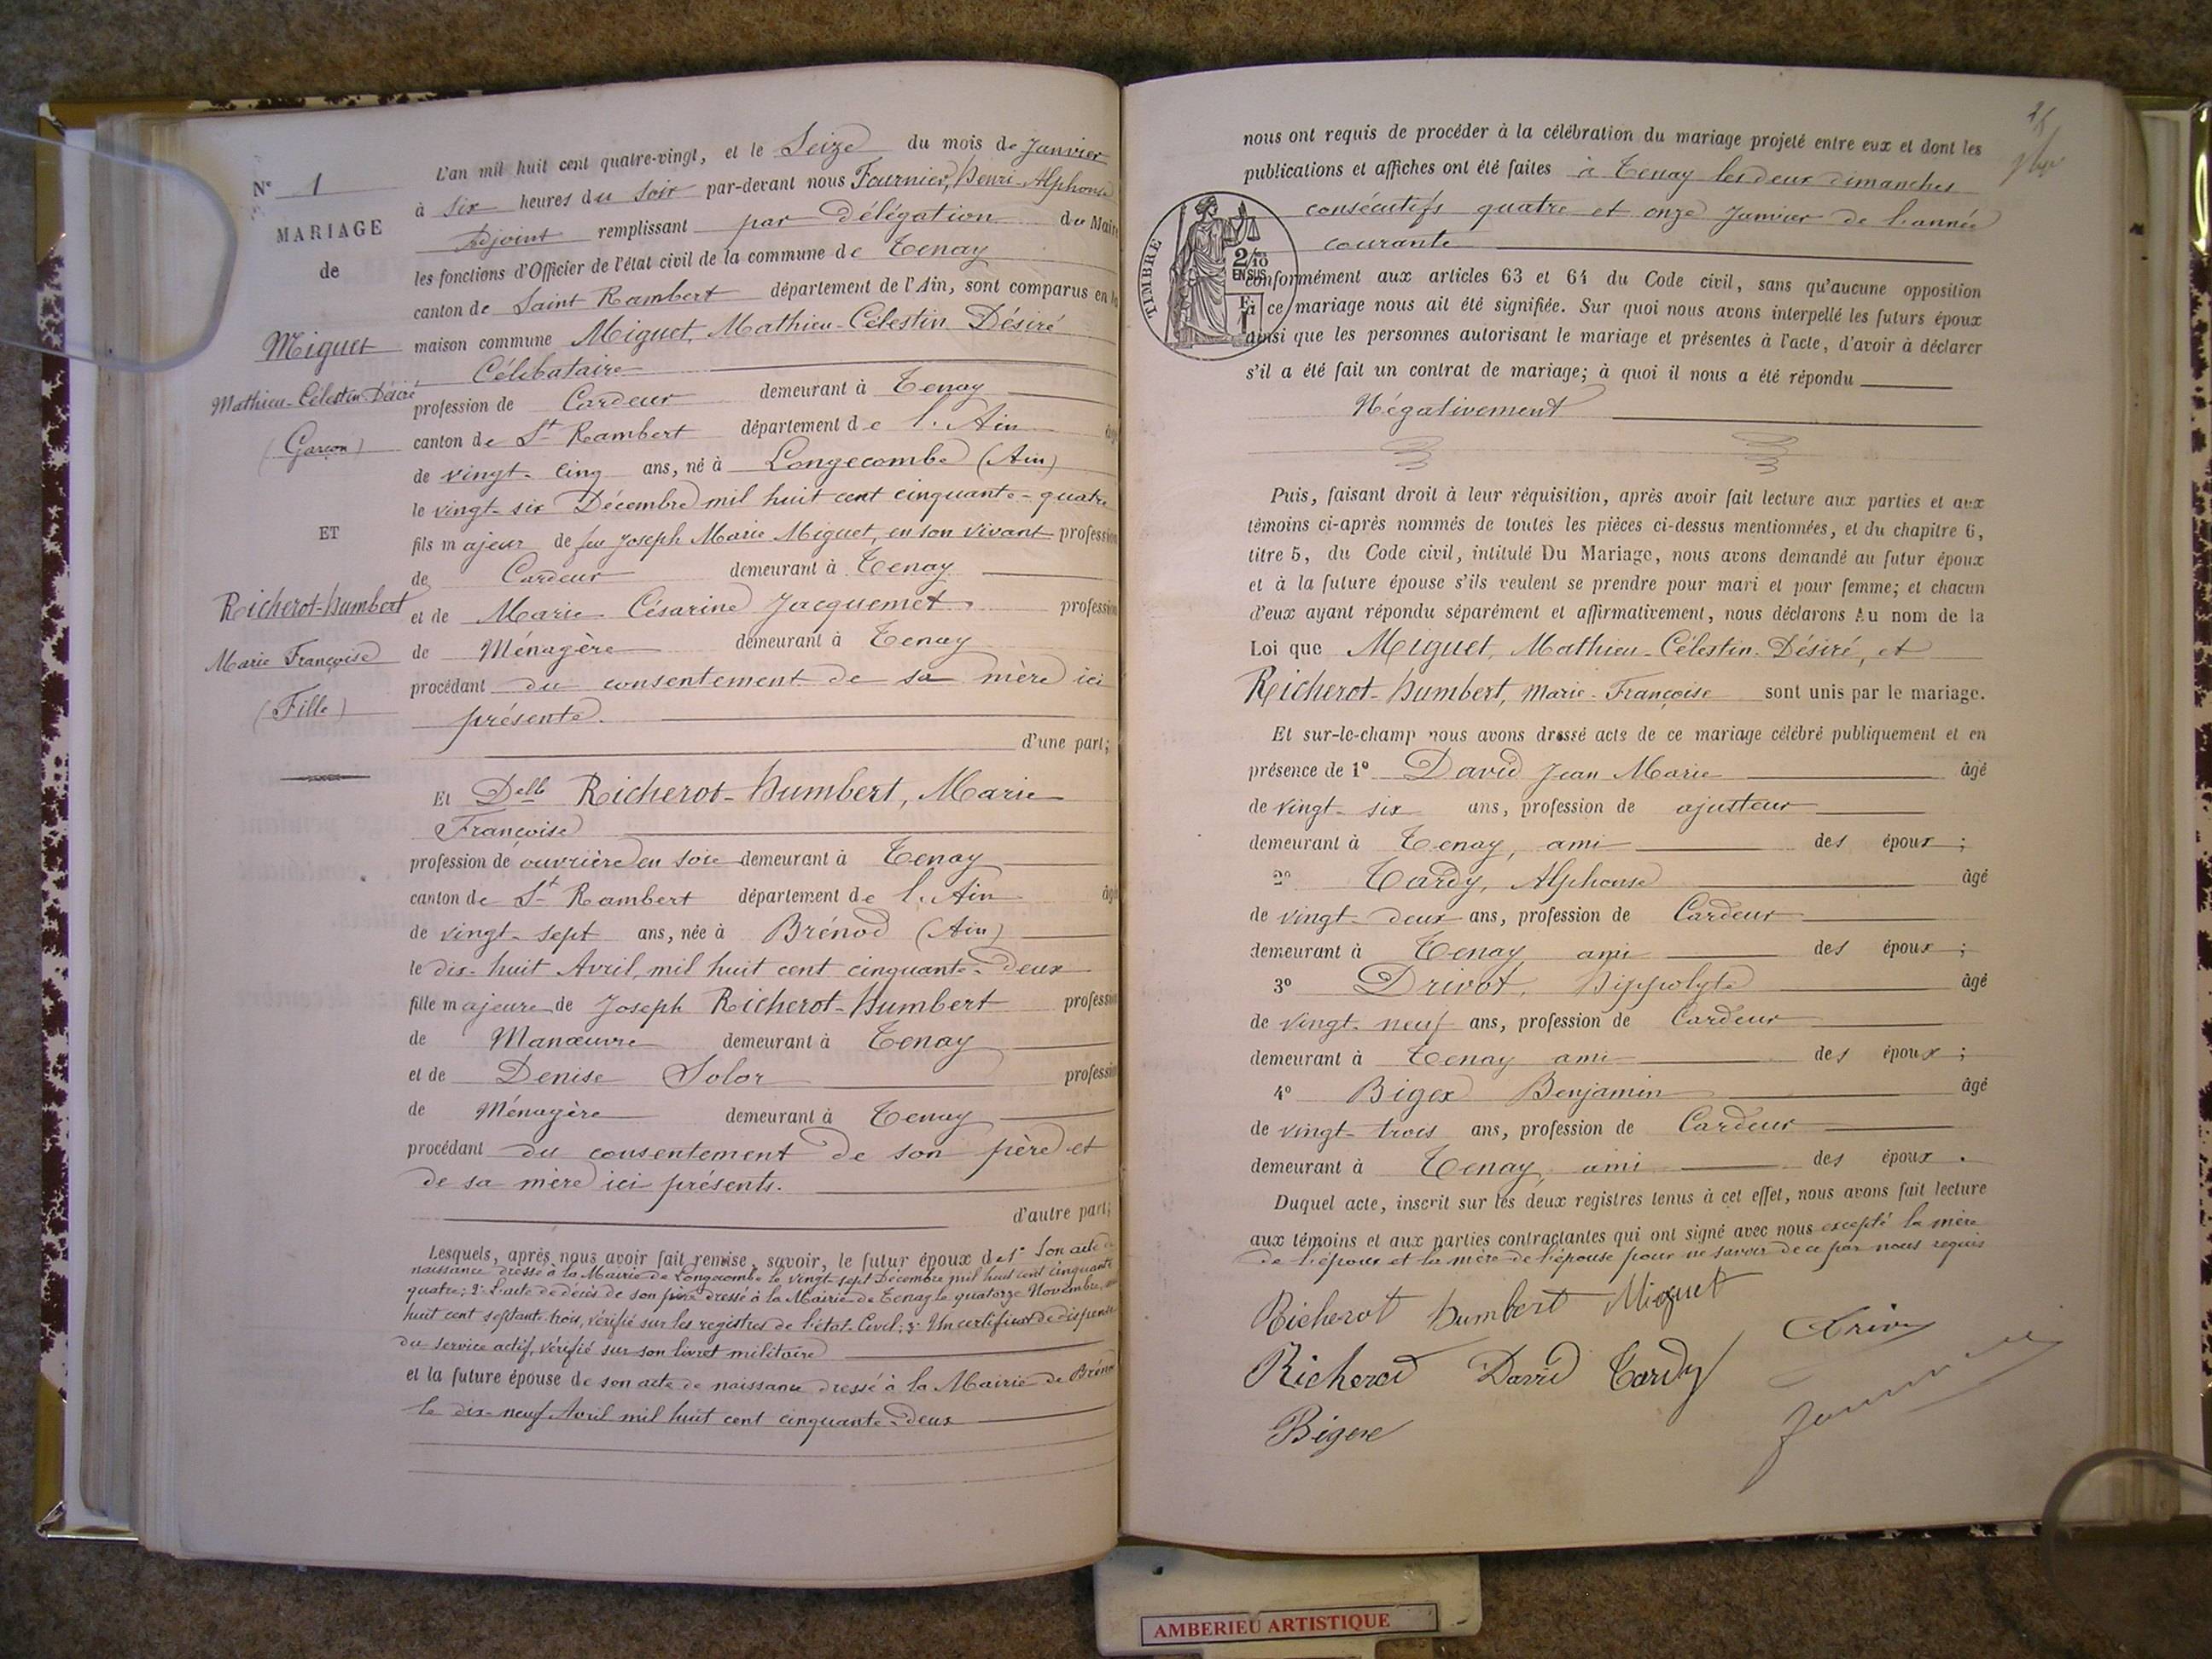 N° 1
MARIAGE
de
Miguet
Mathieu-Célestin-Désiré
(Garçon)
ET
Richerot-humbert
Marie Françoise
(Fille)
L'an mil huit cent quatre-vingt, et le Seize du mois de Janvier
à six heures du soir par-devant nous Fournier, henri-Alphonse
Adjoint remplissant par délégation du Maire
les fonctions d'Officier de l'état civil de la commune de Tenay
canton de Saint Rambert département de l'Ain, sont comparus en la
maison commune Miguet, Mathieu-Célestin Désiré
Célibataire
profession de Cardeur demeurant à Tenay
canton de St Rambert département de l'Ain âgé
de vingt-cinq ans, né à Longecombe (Ain)
le vingt-six Décembre mil huit cent cinquante-quatre
fils majeur de feu Joseph Marie Miguet, en son vivant profession
de Cardeur demeurant à Tenay
et de Marie Césarine Jacquemet profession
de Ménagère demeurant à Tenay
procédant du consentement de sa mère ici
présente.
d'une part;
Et Delle Richerot-humbert, Marie
Françoise
profession de ouvrière en soie demeurant à Tenay
canton de St Rambert département de l'Ain âgé
de vingt-sept ans, née à Brénod (Ain)
le dix-huit Avril, mil huit cent cinquante-deux
fille majeure de Joseph Richerot-humbert profession
de Manœuvre demeurant à Tenay
et de Denise Solor profession
de Ménagère demeurant à Tenay
procédant du consentement de son père et
de sa mère ici présents.
d'autre part;
Lesquels, après nous avoir fait remise, savoir, le futur époux de 1° Son acte de
naissance dressé à la Mairie de Longecombe le vingt-sept Décembre mil huit cent cinquante
quatre; 2° L'acte de décès de son père dressé à la Mairie de Tenay le quatorze Novembre, mil
huit cent septante-trois, vérifié sur les registres de l'état-Civil; 3° Un certificat de dispense
du service actif, vérifié sur son livret militaire
et la future épouse de son acte de naissance dressé à la Mairie de Brénod
le dix-neuf Avril mil huit cent cinquante-deux
25
nous ont requis de procéder à la célébration du mariage projeté entre eux et dont les
publications et affiches ont été faites à Tenay les deux dimanches
consécutifs quatre et onze Janvier de l'année
courante
TIMBRE
2/10
EN SUS
conformément aux articles 63 et 64 du Code civil, sans qu'aucune opposition
à ce mariage nous ait été signifiée. Sur quoi nous avons interpellé les futurs époux
ainsi que les personnes autorisant le mariage et présentes à l'acte, d'avoir à déclarer
s'il a été fait un contrat de mariage; à quoi il nous a été répondu
Négativement
Puis, faisant droit à leur réquisition, après avoir fait lecture aux parties et aux
témoins ci-après nommés de toutes les pièces ci-dessus mentionnées, et du chapitre 6,
titre 5, du Code civil, intitulé Du Mariage, nous avons demandé au futur époux
et à la future épouse s'ils veulent se prendre pour mari et pour femme; et chacun
d'eux ayant répondu séparément et affirmativement, nous déclarons Au nom de la
Loi que Miguet, Mathieu-Célestin-Désiré, et
Richerot-humbert, Marie-Françoise sont unis par le mariage.
Et sur-le-champ nous avons dressé acte de ce mariage célébré publiquement et en
présence de 1° David Jean Marie âgé
de vingt-six ans, profession de ajusteur
demeurant à Tenay, ami des époux;
2° Tardy, Alphonse âgé
de vingt-deux ans, profession de Cardeur
demeurant à Tenay, ami des époux;
3° Drivot, hippolyte âgé
de vingt-neuf ans, profession de Cardeur
demeurant à Tenay ami des époux;
4° Bigex Benjamin âgé
de vingt-trois ans, profession de Cardeur
demeurant à Tenay, ami des époux.
Duquel acte, inscrit sur les deux registres tenus à cet effet, nous avons fait lecture
aux témoins et aux parties contractantes qui ont signé avec nous excepté la mère
de l'époux et la mère de l'épouse pour ne savoir de ce par nous requis
Richerot humbert Miguet
Richerod David Tardy
Bigex
AMBERIEU ARTISTIQUE